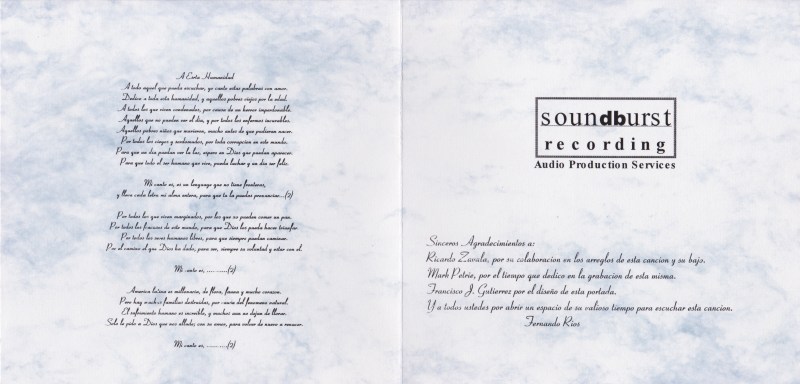 A Esta Humanidad
A todo aquel que pueda escuchar, yo canto estas palabras con amor.
Dedico a toda esta humanidad, y aquellos pobres viejos por la edad.
A todos los que viven condenados, por causa de un horror imperdonable.
Aquellos que no puedan ver el dia, y por todos los enfermos incurables.
Aquellos pobres niños que murieron, mucho antes de que pudieran nacer.
Por todos los ciegos y sordomudos, por toda corrupcion en este mundo.
Para que un dia puedan ver la luz, espero en Dios que puedan aparecer.
Para que todo el ser humano que vive, pueda luchar y un dia ser feliz.
Mi canto es, es un lenguage que no tiene fronteras,
y lleva cada letra mi alma entera, para que tu la puedas pronunciar...(2)
Por todos los que viven marginados, por los que no puedan comer un pan.
Por todos los fracasos de este mundo, para que Dios los pueda hacer triunfar.
Por todos los seres humanos libres, para que siempre puedan caminar.
Por el camino el que Dios ha dado, para ver, siempre su voluntad y estar con el.
Mi canto es, ..........(2)
America latina es millonario, de flora, fauna y mucho corazon.
Pero hay muchas familias destruidas, por causa del fenomeno natural.
El sufrimiento humano es increible, y muchos aun no dejan de llorar.
Solo le pido a Dios que nos ayude; con su amor, para volver de nuevo a renacer.
Mi canto es, ..........(2)
soundburst
recording
Audio Production Services
Sinceros Agradecimientos a:
Ricardo Zavala, por su colaboracion en los arreglos de esta cancion y su bajo.
Mark Petrie, por el tiempo que dedico en la grabacion de esta misma.
Francisco J. Gutierrez por el diseño de esta portada.
Y a todos ustedes por abrir un espacio de su valioso tiempo para escuchar esta cancion.
Fernando Rios